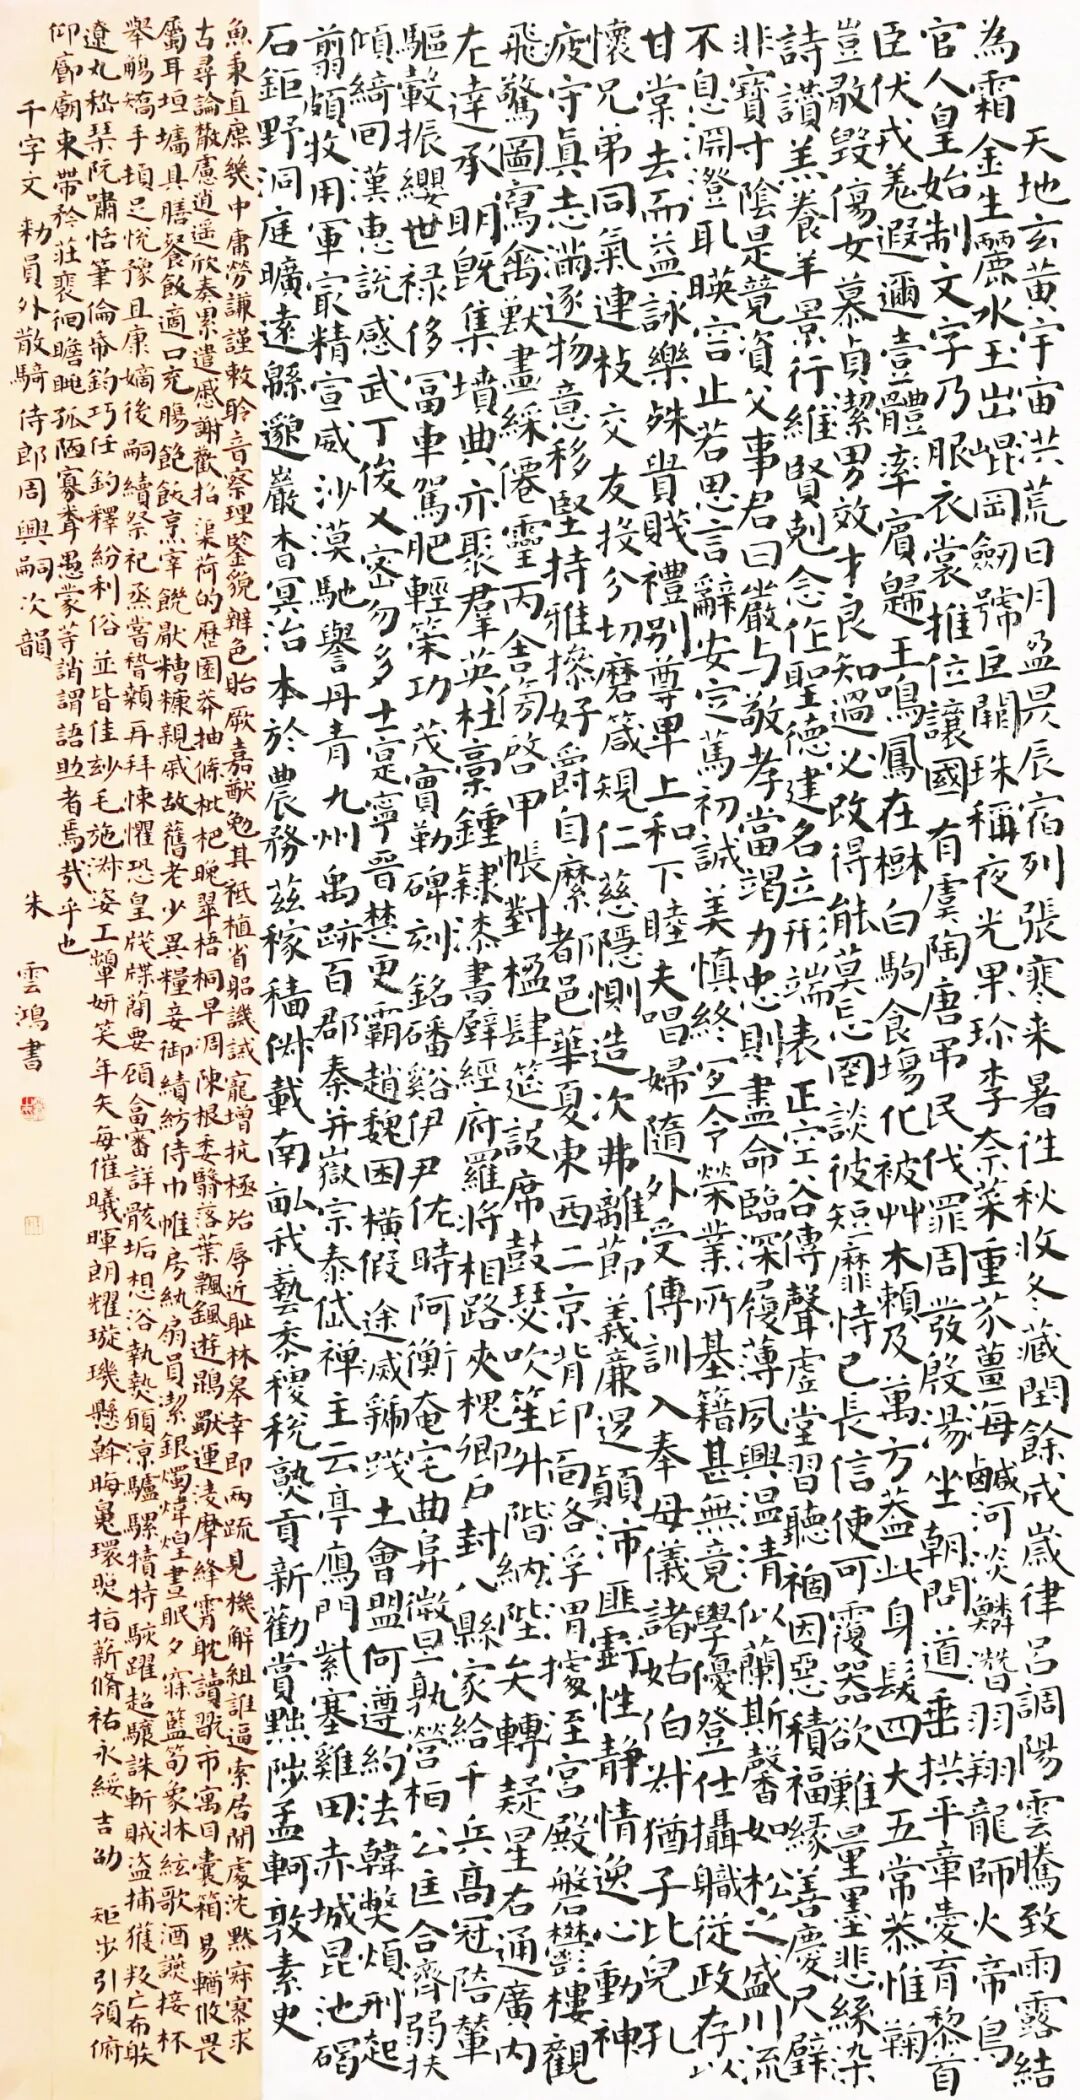 天地玄黃宇宙洪荒日月盈昃辰宿列張寒来暑往秋收冬藏閏餘成歲律呂調陽雲騰致雨露結
為霜金生麗水玉出崐岡劒號巨闕珠稱夜光果珍李奈菜重芥薑海鹹河淡鱗潛羽翔龍師火帝鳥
官人皇始制文字乃服衣裳推位讓國有虞陶唐弔民伐罪周發殷湯坐朝問道垂拱平章愛育黎首
臣伏戎羌遐邇壹體率賓歸王鳴鳳在樹白駒食場化被艸木賴及萬方蓋此身髮四大五常恭惟鞠
豈敢毀傷女慕貞潔男效才良知過必改得能莫忘罔談彼短靡恃己長信使可覆器欲難量墨悲絲染
詩讃羔養羊景行維賢剋念作聖德建名立形端表正空谷傳聲虛堂習聽禍因惡積福緣善慶尺璧
非寶寸陰是競資父事君曰嚴与敬孝當竭力忠則盡命臨深履薄夙興温清似蘭斯馨如松之盛川流
不息淵澄取暎容止若思言辭安定篤初誠美慎終宜令榮業所基籍甚無竟學優登仕攝職從政存以
甘棠去而益詠樂殊貴賤禮别尊卑上和下睦夫唱婦隨外受傅訓入奉母儀諸姑伯叔猶子比兒孔
懷兄弟同氣連枝交友投分切磨箴規仁慈隱惻造次弗離節義廉退顛沛匪虧性静情逸心動神
疲守真志滿逐物意移堅持雅操好爵自縻都邑華夏東西二京背邙面洛浮渭據涇宮殿磐鬱樓觀
飛驚圖寫禽獸畫綵僊靈丙舍傍啓甲帳對楹肆筵設席鼓瑟吹笙升階納陛弁轉疑星右通廣内
左達承明既集墳典亦聚羣英杜稾鍾隸漆書壁經府羅將相路夾槐卿户封八縣家給千兵高冠陪輦
驅轂振纓世禄侈富車駕肥輕策功茂實勒碑刻銘磻谿伊尹佐時阿衡奄宅曲阜微旦孰營桓公匡合濟弱扶
傾綺回漢惠說感武丁俊乂密勿多士寔寧晉楚更霸趙魏困橫假途滅虢踐土會盟何遵約法韓獘煩刑起
翦頗牧用軍最精宣威沙漠馳譽丹青九州禹跡百郡秦并嶽宗泰岱禪主云亭鴈門紫塞雞田赤城昆池碣
石鉅野洞庭曠遠緜邈巖杳冥治本於農務茲稼穡俶載南畝我藝黍稷稅熟貢新勸賞黜陟孟軻敦素史
魚秉直庶幾中庸勞謙謹敕聆音察理鑒貌辨色貽厥嘉猷勉其祗植省躬譏誡寵增抗極殆辱近恥林皋幸即兩疏見機解組誰逼索居閒處沈默寂寥求
古尋論散慮逍遥欣奏累遣慼謝歡招渠荷的歷園莽抽條枇杷晚翠梧桐早凋陳根委翳落葉飄颻遊鵾獨運凌摩絳霄耽讀翫市寓目囊箱易輶攸畏
屬耳垣墻具膳餐飯適口充腸飽飫烹宰饑厭糟糠親戚故舊老少異糧妾御績紡侍巾帷房紈扇員潔銀燭煒煌晝眠夕寐籃筍象牀絃歌酒讌接杯
舉觴矯手頓足悅豫且康嫡後嗣續祭祀烝嘗稽顙再拜悚懼恐皇牋牒簡要顧畣審詳骸垢想浴執熱願涼驢騾犢特駭躍超驤誅斬賊盜捕獲叛亡布䠶
遼丸嵇琴阮嘯恬筆倫帋鈞巧任釣釋紛利俗並皆佳妙毛施淑姿工顰妍笑年矢每催曦暉朗耀璇璣懸斡晦魄環照指薪脩祜永綏吉劭矩步引領俯
仰廊廟束帶矜莊裴徊瞻眺孤陋寡聞愚蒙等誚謂語助者焉哉乎也
千字文 勑員外散騎侍郎周興嗣次韻 朱雲鴻書